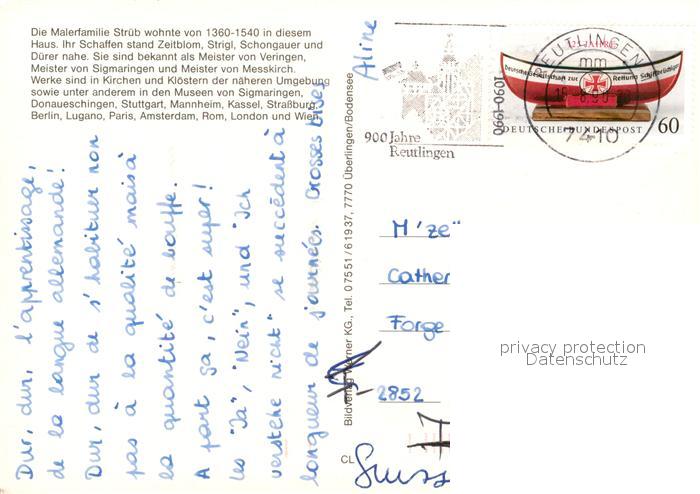 Die Malerfamilie Strüb wohnte von 1360-1540 in diesem
Haus. Ihr Schaffen stand Zeitblom, Strigl, Schongauer und
Dürer nahe. Sie sind bekannt als Meister von Veringen,
Meister von Sigmaringen und Meister von Messkirch.
Werke sind in Kirchen und Klöstern der näheren Umgebung
sowie unter anderem in den Museen von Sigmaringen,
Donaueschingen, Stuttgart, Mannheim, Kassel, Straßburg,
Berlin, Lugano, Paris, Amsterdam, Rom, London und Wien.
Dur, dur, l'apprentissage,
de la langue allemande!
Dur, dur de s'habituer non
pas à la qualité mais à
la quantité de bouffe.
A part ça, c'est super!
Les "Ja", "Nein", und "Ich
verstehe nicht" se succèdent à
longueur de journées. Grosses bises
Aline
Bildverlag Werner KG., Tel. 07551/61937, 7770 Überlingen/Bodensee
CL
900 Jahre
Reutlingen
1090-1990
REUTLINGEN
mm
7410
125 JAHRE
Deutsche Gesellschaft zur Rettung Schiffbrüchiger
DEUTSCHE BUNDESPOST
60
M'ze"
Cather
Forge
2852
Suiss
privacy protection
Datenschutz